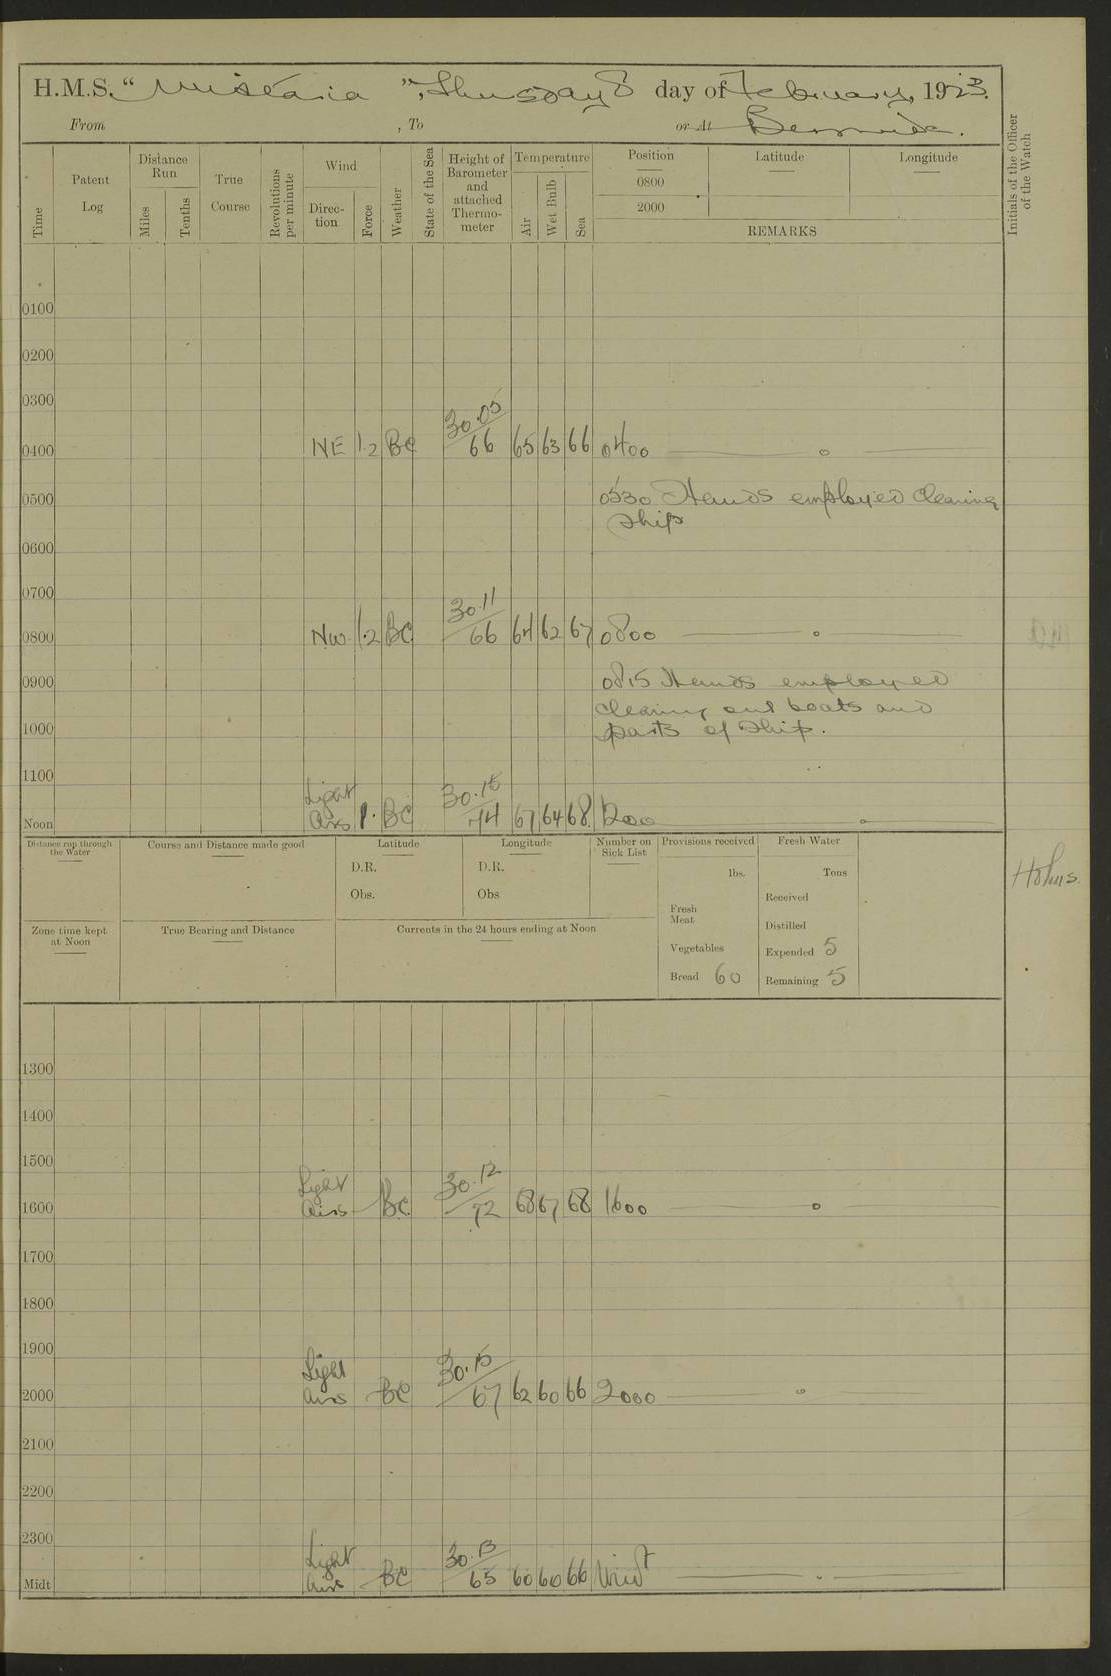 H.M.S. “ Wistaria ”, Thursday 8 day of February, 1923.
From , To or At Bermuda.
Time
Patent Log
Distance Run
Miles
Tenths
True Course
Revolutions per minute
Wind
Direc-tion
Force
Weather
State of the Sea
Height of Barometer and attached Thermo-meter
Temperature
Air
Wet Bulb
Sea
Position Latitude Longitude
0800
2000
REMARKS
Initials of the Officer of the Watch
0100
0200
0300
30.05
0400 NE 1.2 BC 66 65 63 66 0400
0500 0530 Hands employed cleaning
ship
0600
0700
30.11
0800 NW. 1.2 BC 66 64 62 67 0800
0900 0815 Hands employed
cleaning out boats and
1000 parts of ship.
1100
Light 30.15
Noon airs 1. BC 74 67 64 68 1200
Distance run through the Water
Course and Distance made good
Latitude
D.R.
Obs.
Longitude
D.R.
Obs
Number on Sick List
Provisions received
lbs.
Fresh Meat
Vegetables
Bread 60
Fresh Water
Tons
Received
Distilled
Expended 5
Remaining 5
Zone time kept at Noon
True Bearing and Distance
Currents in the 24 hours ending at Noon
1300
1400
1500
Light 30.12
1600 airs BC 72 68 67 68 1600
1700
1800
1900
Light 30.15
2000 airs BC 67 62 60 66 2000
2100
2200
2300
Light 30.13
Midt airs BC 65 60 60 66